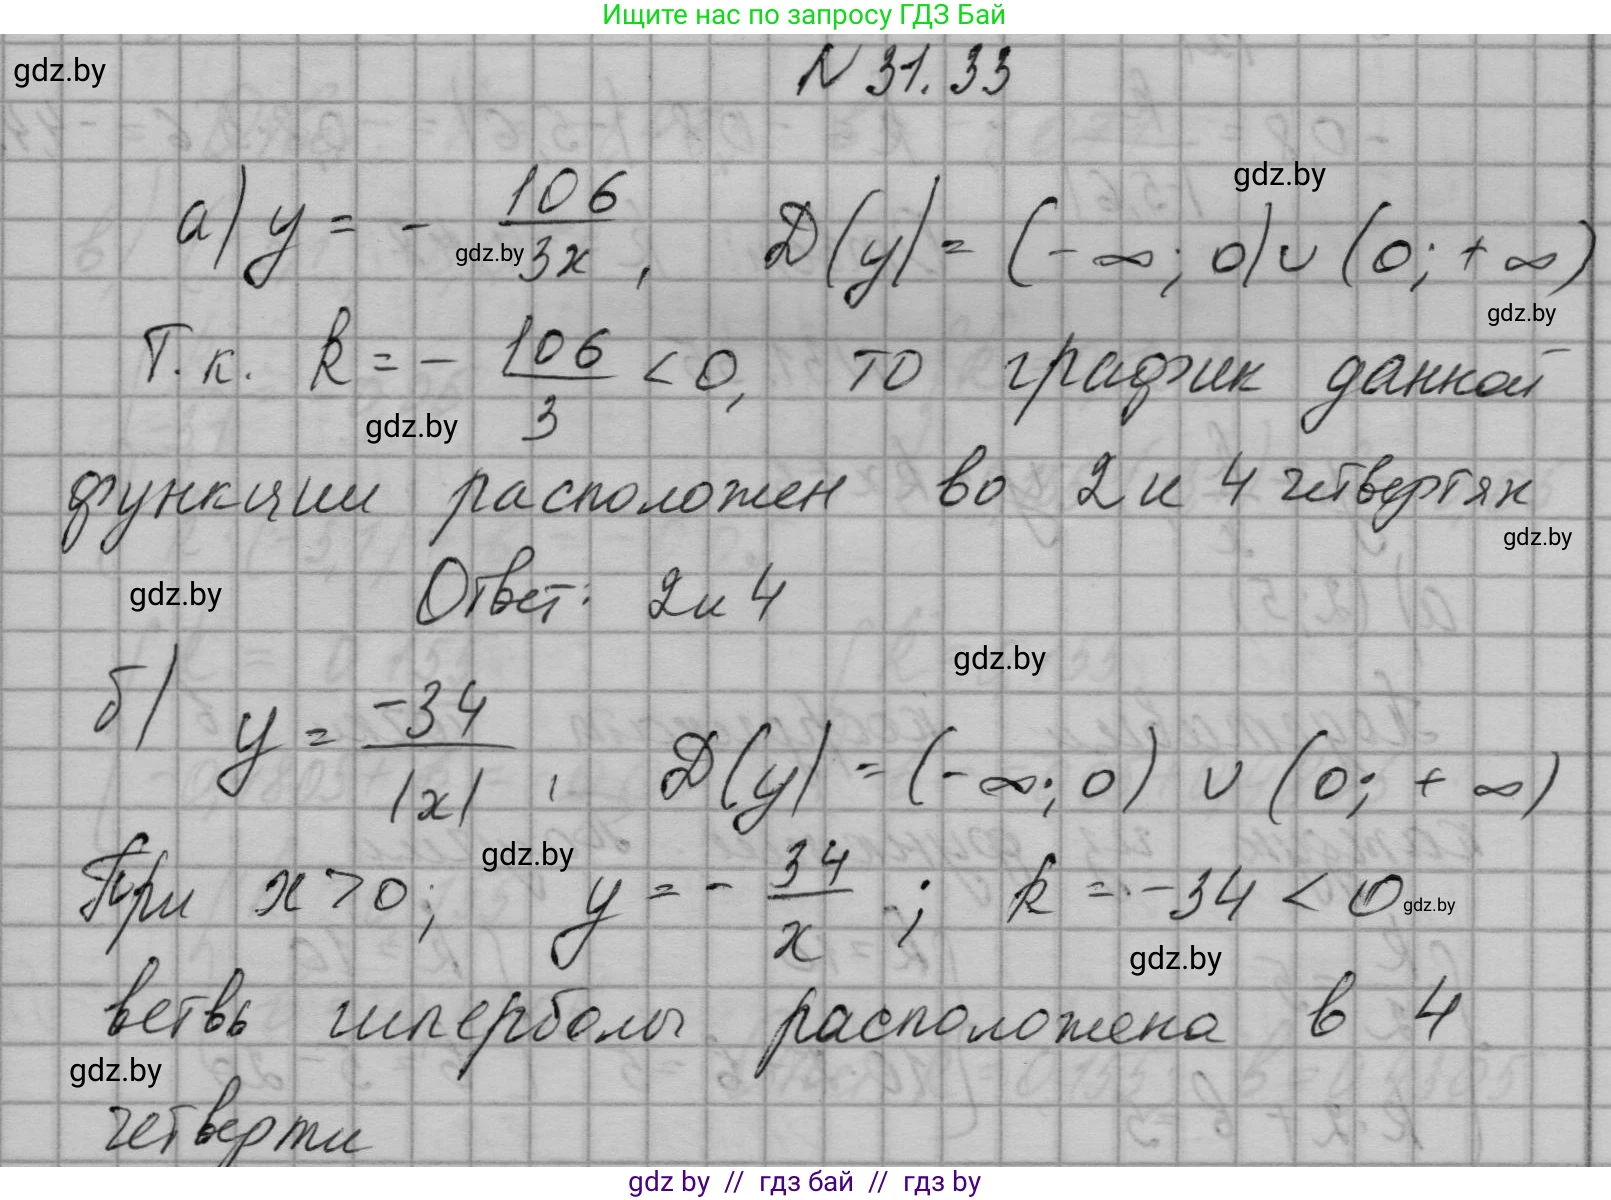 Ищите нас по запросу ГДЗ Бай
gdz.by
N 31.33
gdz.by
а) y = - 106/3x, D(y) = (-∞; 0) ∪ (0; +∞)
gdz.by
gdz.by
Т.к. k = - 106/3 < 0, то график данной
gdz.by
функции расположен во 2 и 4 четвертях
gdz.by
gdz.by
Ответ: 2 и 4
gdz.by
б) y = -34/|x|, D(y) = (-∞; 0) ∪ (0; +∞)
gdz.by
При x > 0; y = - 34/x; k = -34 < 0
gdz.by
gdz.by
ветвь гиперболы расположена в 4
gdz.by
четверти
gdz.by // гдз бай // гдз by